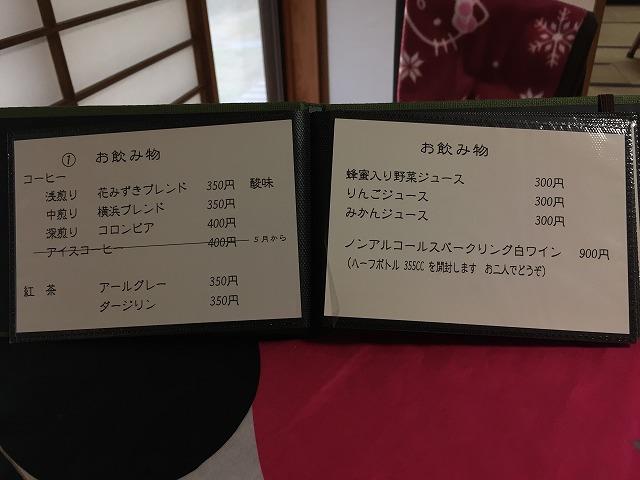 ① お飲み物
コーヒー
浅煎り 花みずきブレンド 350円 酸味
中煎り 横浜ブレンド 350円
深煎り コロンビア 400円
アイスコーヒー 400円 5月から
紅茶 アールグレー 350円
ダージリン 350円
お飲み物
蜂蜜入り野菜ジュース 300円
りんごジュース 300円
みかんジュース 300円
ノンアルコールスパークリング白ワイン 900円
(ハーフボトル 355CC を開封します お二人でどうぞ)